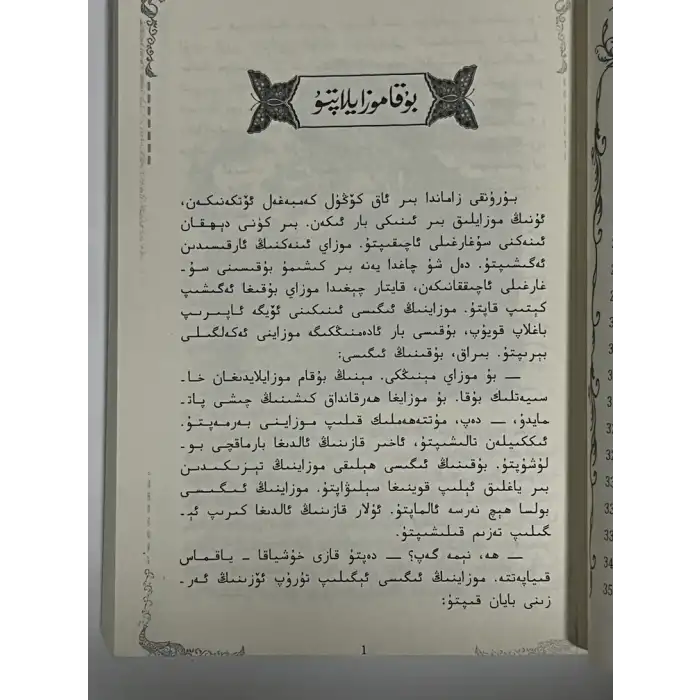 بۇقا موزايلاپتۇ
بۇرۇنقى زاماندا بىر ئاق كۆڭۈل كەمبەغەل ئۆتكەنىكەن،
ئۇنىڭ موزايلىق بىر ئىنىكى بار ئىكەن. بىر كۈنى دېھقان
ئىنەكنى سۇغارغىلى ئاچىقىپتۇ. موزاي ئىنەكنىڭ ئارقىسىدىن
ئەگىشىپتۇ. دەل شۇ چاغدا يەنە بىر كىشىمۇ بۇقىسىنى سۇ-
غارغىلى ئاچىققانىكەن، قايتار چېغىدا موزاي بۇقىغا ئەگىشىپ
كېتىپ قاپتۇ. موزاينىڭ ئىگىسى ئىنىكىنى ئۆيگە ئاپىرىپ
باغلاپ قويۇپ، بۇقىسى بار ئادەمنىڭكىگە موزاينى ئەكەلگىلى
بېرىپتۇ. بىراق، بۇقىنىڭ ئىگىسى:
— بۇ موزاي مېنىڭكى. مېنىڭ بۇقام موزايلايدىغان خا-
سىيەتلىك بۇقا. بۇ موزايغا ھەرقانداق كىشىنىڭ چىشى پات-
مايدۇ، — دەپ، مۇتتەھەملىك قىلىپ موزاينى بەرمەپتۇ.
ئىككىيلەن تالىشىپتۇ، ئاخىر قازىنىڭ ئالدىغا بارماقچى بو-
لۇشۇپتۇ. بۇقىنىڭ ئىگىسى ھېلىقى موزاينىڭ تېزىكىدىن
بىر ياغلىق ئېلىپ قوينىغا سېلىۋاپتۇ. موزاينىڭ ئىگىسى
بولسا ھېچ نەرسە ئالماپتۇ. ئۇلار قازىنىڭ ئالدىغا كىرىپ ئې-
گىلىپ تەزىم قىلىشىپتۇ.
— ھە، نېمە گەپ؟ — دەپتۇ قازى خۇشياقا - ياقماس
قىياپەتتە. موزاينىڭ ئىگىسى ئېگىلىپ تۇرۇپ ئۆزىنىڭ ئەر-
زىنى بايان قىپتۇ:
1